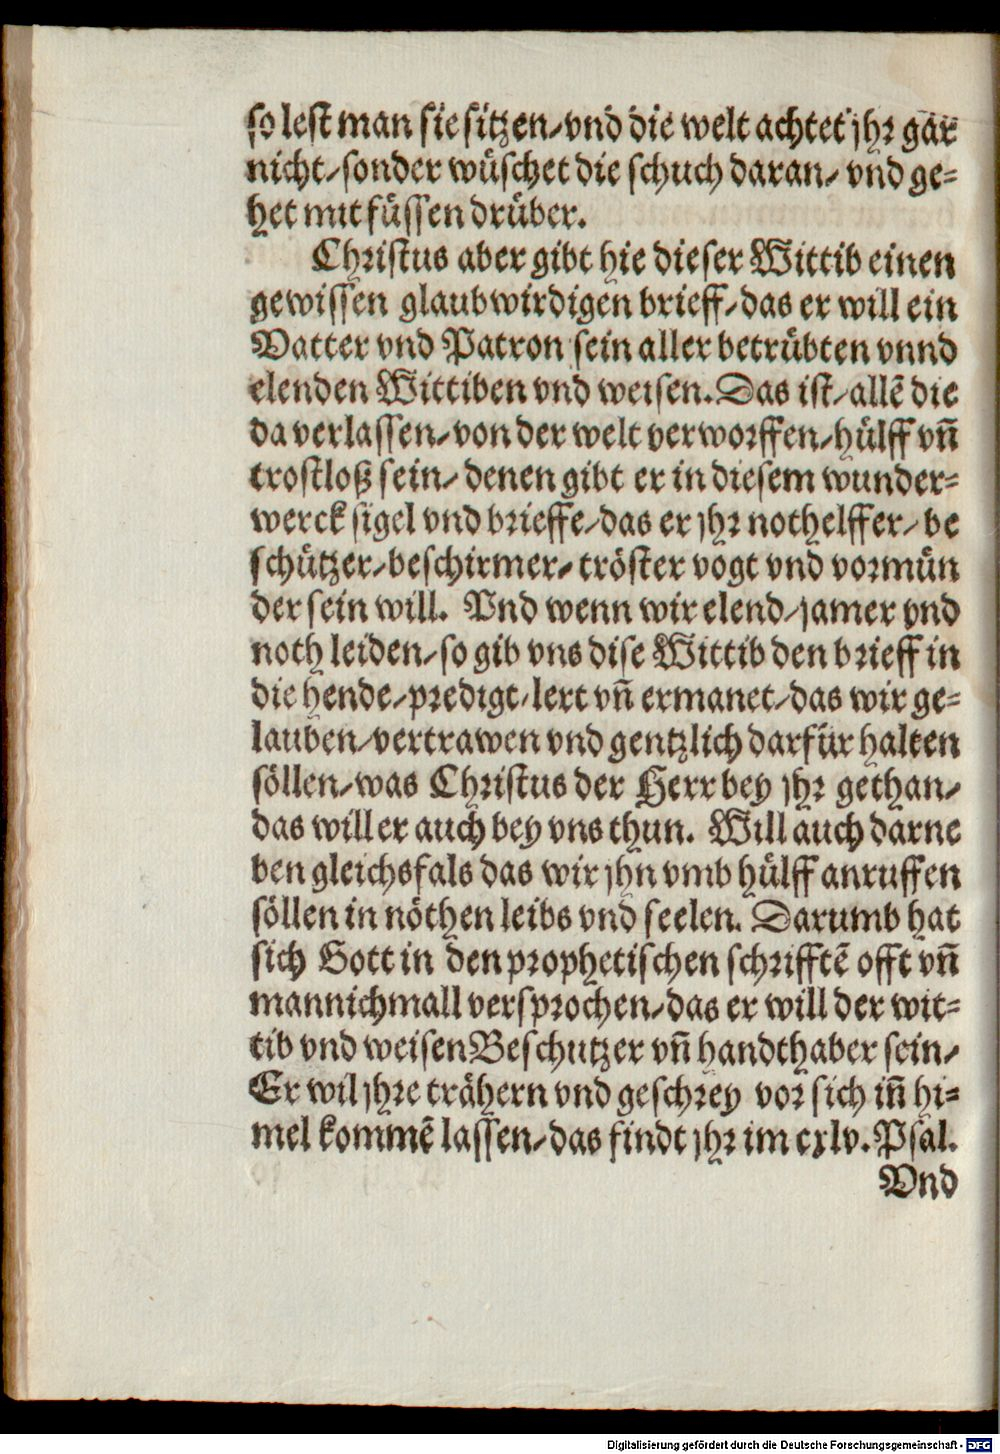 so lest man sie sitzen/ vnd die welt achtet jhr gar
nicht/ sonder wüschet die schuch daran/ vnd ge=
het mit füssen drüber.
Christus aber gibt hie dieser Wittib einen
gewissen glaubwirdigen brieff/ das er will ein
Vatter vnd Patron sein aller betrübten vnnd
elenden Wittiben vnd weisen. Das ist/ allē die
da verlassen/ von der welt verworffen/ hülff vñ
trostloß sein/ denen gibt er in diesem wunder=
werck sigel vnd brieffe/ das er jhr nothelffer/ be
schützer/ beschirmer/ tröster vogt vnd vormün
der sein will. Vnd wenn wir elend/ jamer vnd
noth leiden/ so gib vns dise Wittib den brieff in
die hende/ predigt/ lert vñ ermanet/ das wir ge=
lauben/ vertrawen vnd gentzlich darfür halten
söllen/ was Christus der Herr bey jhr gethan/
das will er auch bey vns thun. Will auch darne
ben gleichsfals das wir jhn vmb hülff anruffen
söllen in nöthen leibs vnd seelen. Darumb hat
sich Gott in den prophetischen schrifftē offt vñ
mannichmall versprochen/ das er will der wit=
tib vnd weisen Beschutzer vñ handthaber sein/
Er wil jhre trähern vnd geschrey vor sich iñ hi=
mel kommē lassen/ das findt jhr im cxlv. Psal.
Vnd
Digitalisierung gefördert durch die Deutsche Forschungsgemeinschaft - DFG